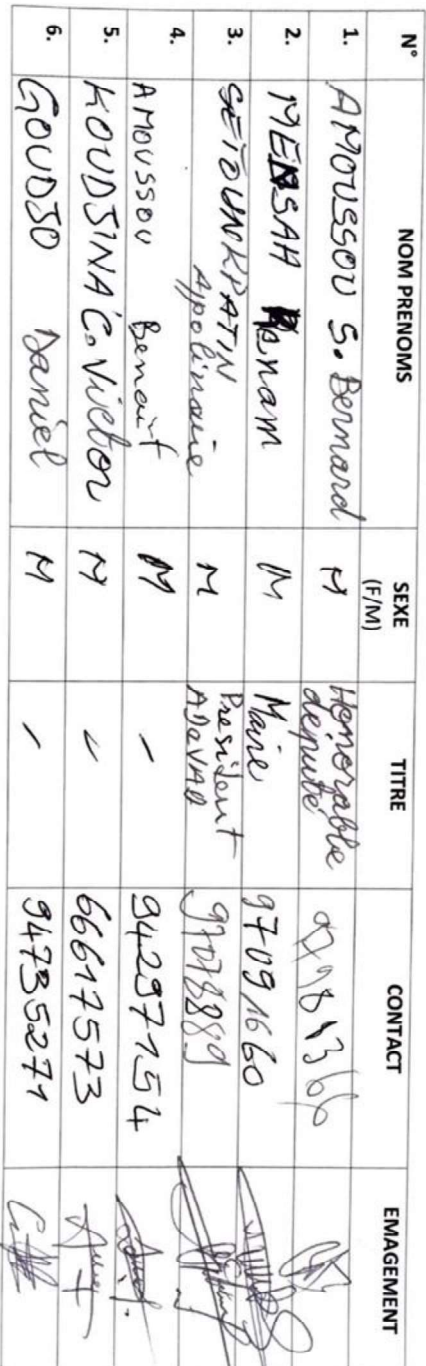 N° NOM PRENOMS SEXE (F/M) TITRE CONTACT EMAGEMENT
1. AMOUSSOU S. Bernard M Honorable député
2. MENSAH M Maire 97091660
3. Apolinaire M President ADeVAD 97078889
4. AMOUSSOU Benoit M - 94297154
5. KOUDJINA C. Victor M - 66617573
6. GOUDJO Daniel M - 94735271